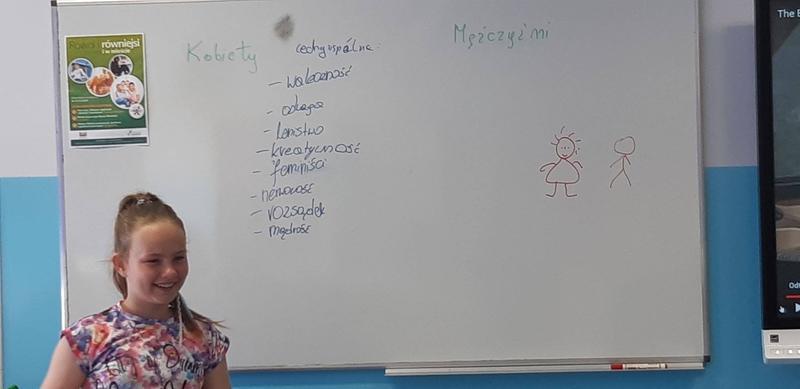 równiejsi
i w mieście
Kobiety
cechy wspólne:
Mężczyźni
- waleczność
- odwaga
- lenistwo
- kreatywność
- feminiści
- nerwowość
- rozsądek
- mądrość
The